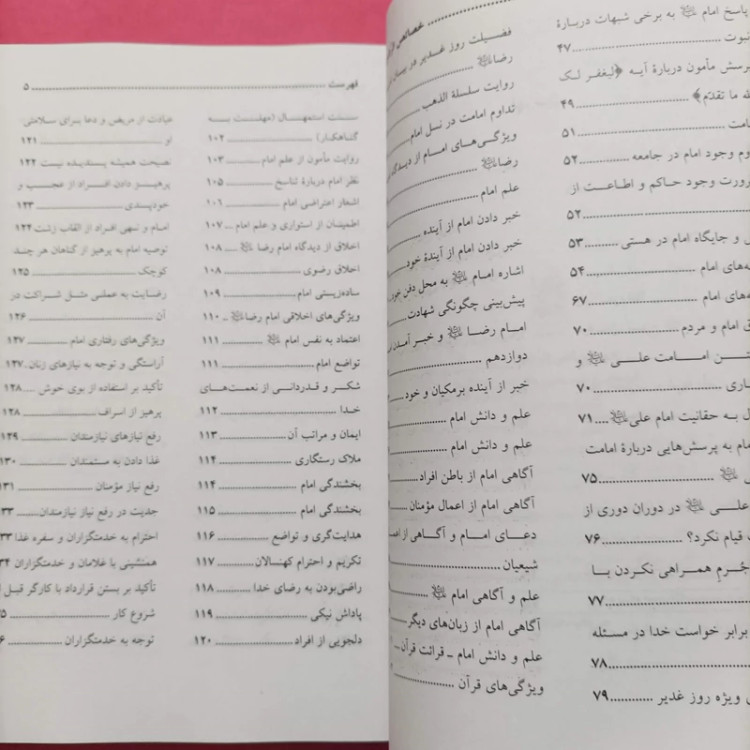 پاسخ امام ﷷ به برخی شبهات دربارهٔ
نبوت ............ ۴۷
پرسش مأمون دربارهٔ آیه ﴿لیغفر لک
ما تقدّم﴾ ............ ۴۹
............ ۵۱
وجود امام در جامعه ............ ۵۲
ضرورت وجود حاکم و اطاعت از
............ ۵۲
و جایگاه امام در هستی ............ ۵۳
امام ............ ۵۴
امام ............ ۶۷
امام و مردم ............ ۷۰
امامت علی ﷷ و
............ ۷۰
به حقانیت امام علی ﷷ ............ ۷۱
امام به پرسش‌هایی دربارهٔ امامت
ﷷ ............ ۷۵
علی ﷷ در دوران دوری از
قیام نکرد؟ ............ ۷۶
جُرم همراهی نکردن با
............ ۷۷
برابر خواست خدا در مسئله
............ ۷۸
ویژه روز غدیر ............ ۷۹
فضیلت روز غدیر در بیان
رضا ﷷ ............
روایت سلسلة الذهب
تداوم امامت در نسل امام
ویژگی‌های امام از دیدگاه
رضا ﷷ ............
علم امام ............
خبر دادن امام از آینده ............
خبر دادن امام از آیندهٔ خود ............
اشاره امام ﷷ به محل دفن خود
پیش‌بینی چگونگی شهادت ............
امام رضا ﷷ و خبر
دوازدهم ............
خبر از آینده برمکیان و خود ............
علم و دانش امام ............
علم و دانش امام ............
آگاهی امام از باطن افراد ............
آگاهی امام از اعمال مؤمنان ............
دعای امام و آگاهی از
شیعیان ............
علم و آگاهی امام ﷷ ............
آگاهی امام از زبان‌های دیگر ............
علم و دانش امام ـ قرائت قرآن ............
ویژگی‌های قرآن ............
فهرست ............ ۵
سنت استمهال (مهلت به
گناهکار) ............ ۱۰۲
روایت مأمون از علم امام ............ ۱۰۳
نظر امام دربارهٔ تناسخ ............ ۱۰۵
اشعار اعتراضی امام ............ ۱۰۶
اطمینان از استواری و علم امام ... ۱۰۷
اخلاق از دیدگاه امام رضا ﷷ ... ۱۰۸
اخلاق رضوی ............ ۱۰۸
ساده‌زیستی امام ............ ۱۰۹
ویژگی‌های اخلاقی امام رضا ﷷ .. ۱۱۰
اعتماد به نفس امام ﷷ ............ ۱۱۱
تواضع امام ............ ۱۱۱
شکر و قدردانی از نعمت‌های
خدا ............ ۱۱۲
ایمان و مراتب آن ............ ۱۱۳
ملاک رستگاری ............ ۱۱۴
بخشندگی امام ............ ۱۱۴
بخشندگی امام ............ ۱۱۵
هدایت‌گری و تواضع ............ ۱۱۶
تکریم و احترام کهنسالان ............ ۱۱۷
راضی‌بودن به رضای خدا ............ ۱۱۸
پاداش نیکی ............ ۱۱۹
دلجویی از افراد ............ ۱۲۰
عیادت از مریض و دعا برای سلامتی
او ............ ۱۲۱
نصیحت همیشه پسندیده نیست ۱۲۲
پرهیز دادن افراد از عجب و
خودپسندی ............ ۱۲۳
امام و نهی افراد از القاب زشت ۱۲۴
توصیه امام به پرهیز از گناهان هر چند
کوچک ............ ۱۲۵
رضایت به عملی مثل شراکت در
آن ............ ۱۲۶
ویژگی‌های رفتاری امام ............ ۱۲۷
آراستگی و توجه به نیازهای زنان .. ۱۲۷
تأکید بر استفاده از بوی خوش .... ۱۲۸
پرهیز از اسراف ............ ۱۲۸
رفع نیازهای نیازمندان ............ ۱۲۹
غذا دادن به مستمندان ............ ۱۳۰
رفع نیاز مؤمنان ............ ۱۳۱
جدیت در رفع نیاز نیازمندان ............ ۳۳
احترام به خدمتگزاران و سفره غذا ۳۳
همنشینی با غلامان و خدمتگزاران ۳۴
تأکید بر بستن قرارداد با کارگر قبل از
شروع کار ............
توجه به خدمتگزاران ............